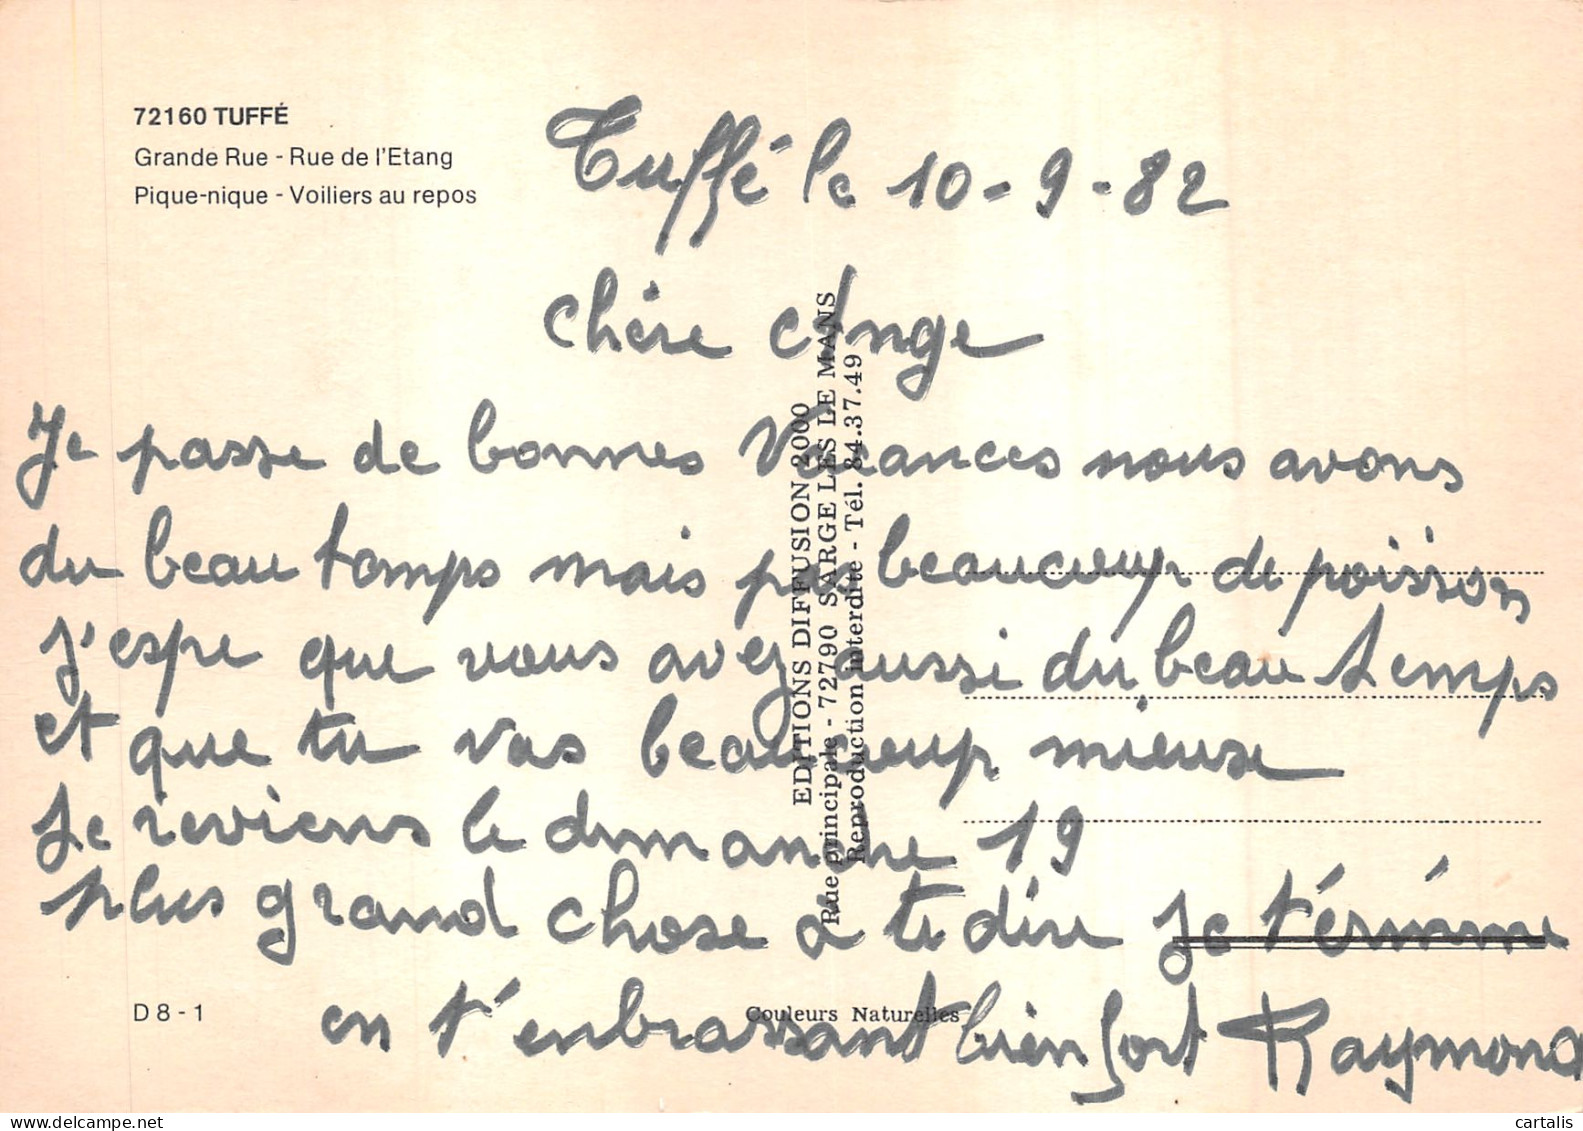 72160 TUFFÉ
Grande Rue - Rue de l'Etang
Pique-nique - Voiliers au repos
Tuffé le 10-9-82
chère Ange
Je passe de bonnes Vacances nous avons
du beau temps mais pas beaucoup de poisson
J'espe que vous avez aussi du beau temps
et que tu vas beaucoup mieuse
Je reviens le dimanche 19
plus grand chose a te dire Je t'érmine
en t'enbrassant bien fort Raymond
EDITIONS DIFFUSION 2000
Rue principale - 72790 SARGE LES LE MANS
Reproduction interdite - Tél. 84.37.49
D 8 - 1
Couleurs Naturelles
www.delcampe.net
cartalis